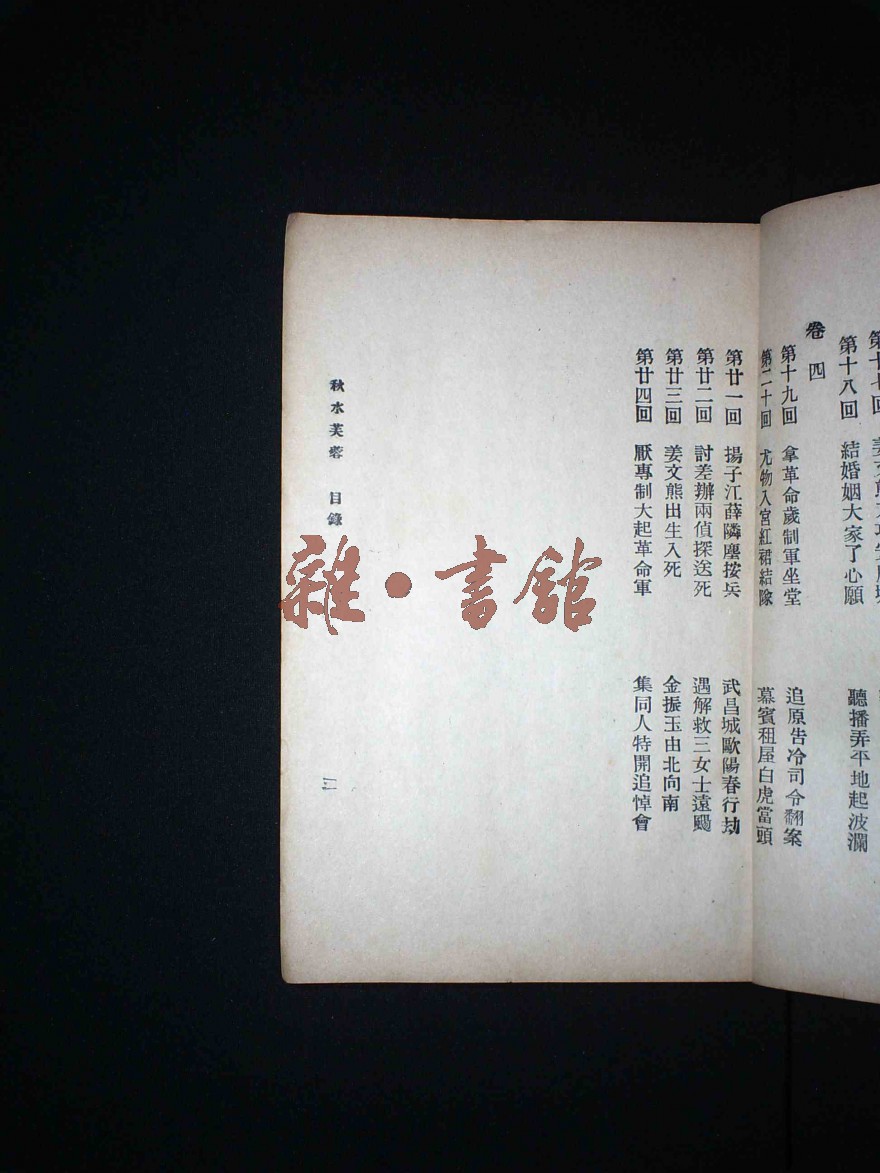 第十七回
第十八回 結婚姻大家了心願 聽播弄平地起波瀾
卷四
第十九回 拿革命歲制軍坐堂 追原告冷司令翻案
第二十回 尤物入宮紅裙結隊 幕賓租屋白虎當頭
第廿一回 揚子江薛隣塵按兵 武昌城歐陽春行劫
第廿二回 討差辦兩偵探送死 遇解救三女士遠颺
第廿三回 姜文熊出生入死 金振玉由北向南
第廿四回 厭專制大起革命軍 集同人特開追悼會
秋水芙蓉 目錄
二
雜·書館